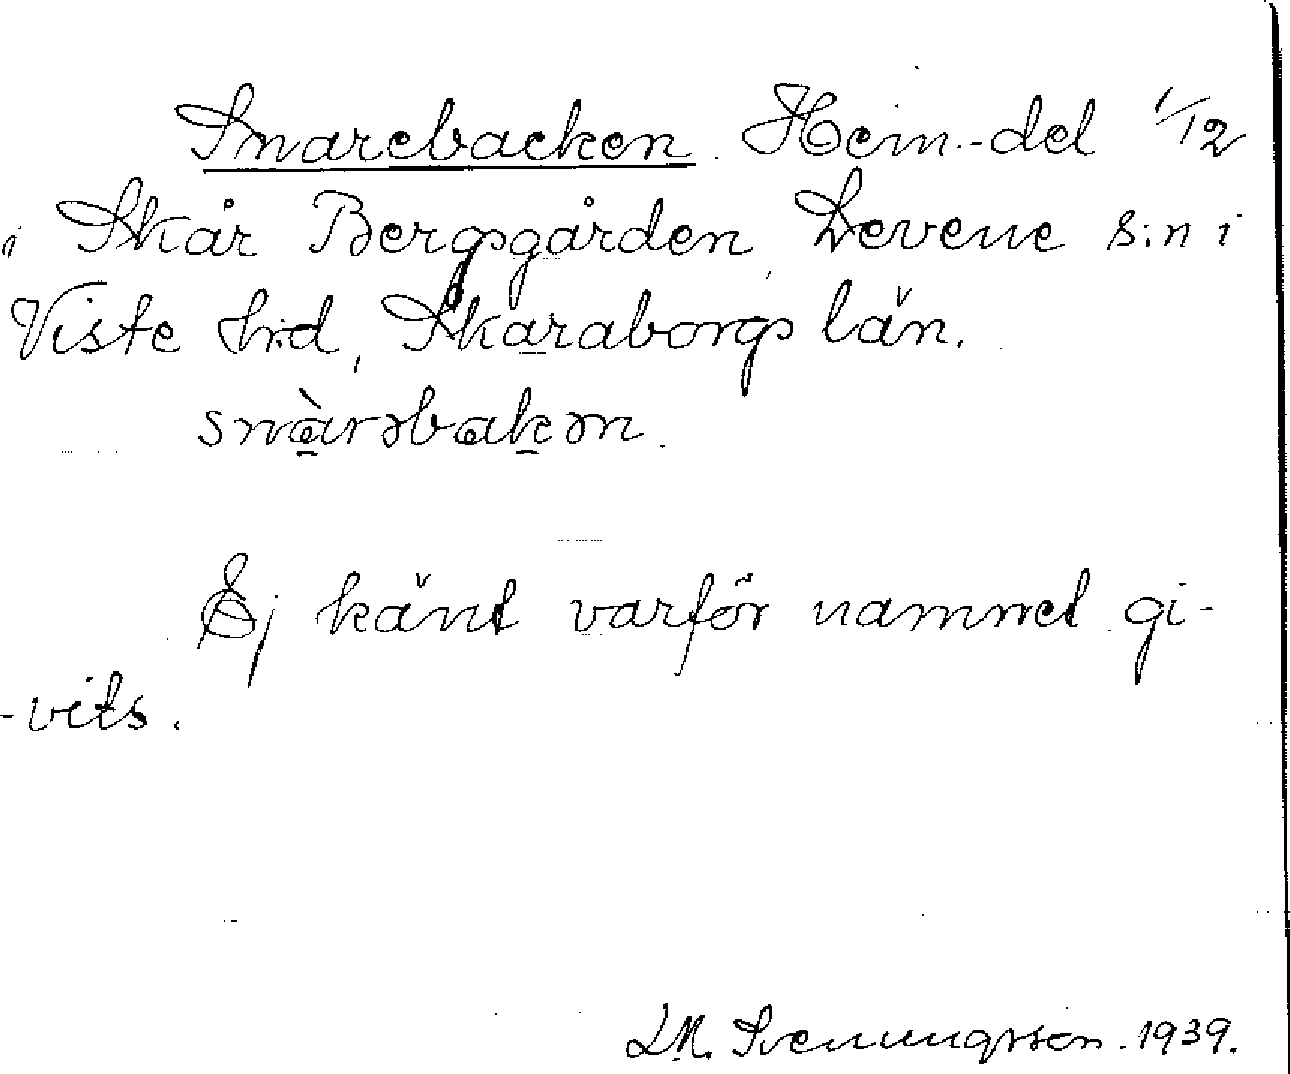 Snarebacken. Hem.-del 1/12
i Skår Bergsgården, Levene s:n i
Viste h:d, Skaraborgs län.
snàrəbakən.
Ej känt varför namnet gi-
-vits.
L.M. Svenungsson. 1939.